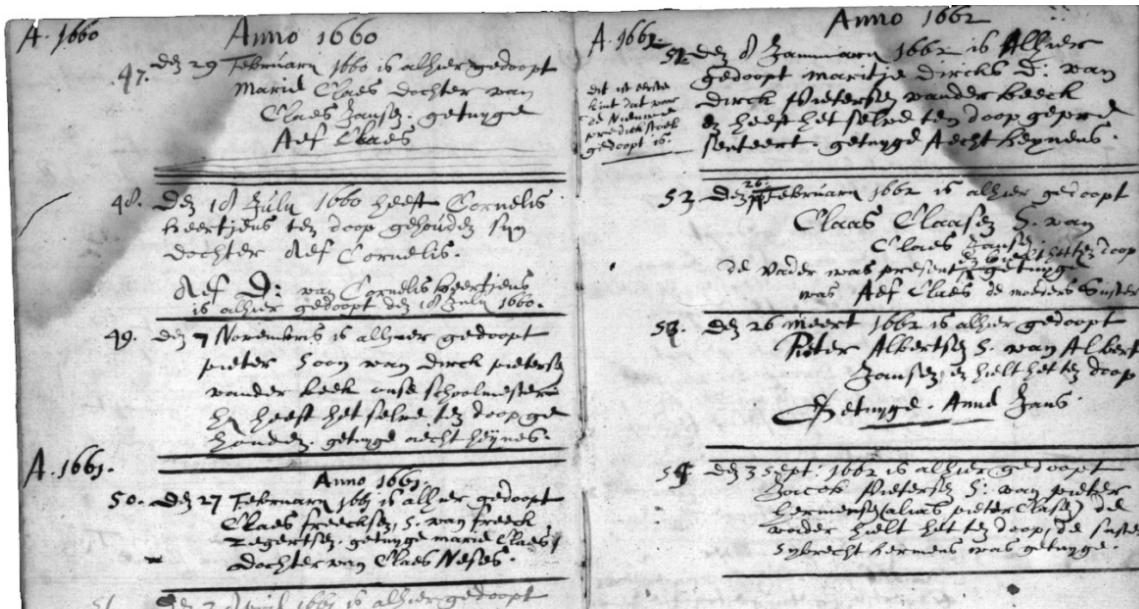 A. 1660
Anno 1660
47. den 29 Februarij 1660 is alhier gedoopt
Marie Claes dochter van
Claes Jansen. getuyge
Aef Claes
48. Den 18 Julij 1660 heeft Cornelis
ten doop gehouden sijn
dochter Aef Cornelis.
Aef D: van Cornelis
is alhier gedoopt den 18 Julij 1660.
49. den 7 Novembris is alhier gedoopt
pieter Soon van dirck pieterse
vander beek onse schoolmester
hij heeft het selve ten doop ge
houden. getuyge aecht heynes.
A. 1661.
Anno 1661.
50. den 27 Februarij 1661 is alhier gedoopt
Claes freecksen, S. van freeck
getuyge marie Claes
dochter van Claes Neses.
51. den 1661 is alhier gedoopt
Anno 1662
A. 1662.
den 8 Januarij 1662 is Alhier
gedoopt maritje dircks D: van
dirck Pietersen vander beeck
en heeft het selve ten doop gepre
senteert. getuyge Aecht heynens.
dit is eerste
kint dat van
de nieuwe
predickstoel
gedoopt is.
52. Den 26 Februarij 1662 is alhier gedoopt
Claas Claasen S. van
Claes Jansen
de vader was present getuyge
was Aef Claes de moeders suster
53. den 26 meert 1662 is alhier gedoopt
Pieter Albertsen S. van Albert
Jansen, en hielt het ten doop
Getuyge. Anne Jans.
54 den 3 Sept. 1662 is alhier gedoopt
Jacob Pietersen S. van pieter
hermensen (alias pieter Clasen) de
vader hielt het ten doop, de suster
Sybrecht hermens was getuyge.